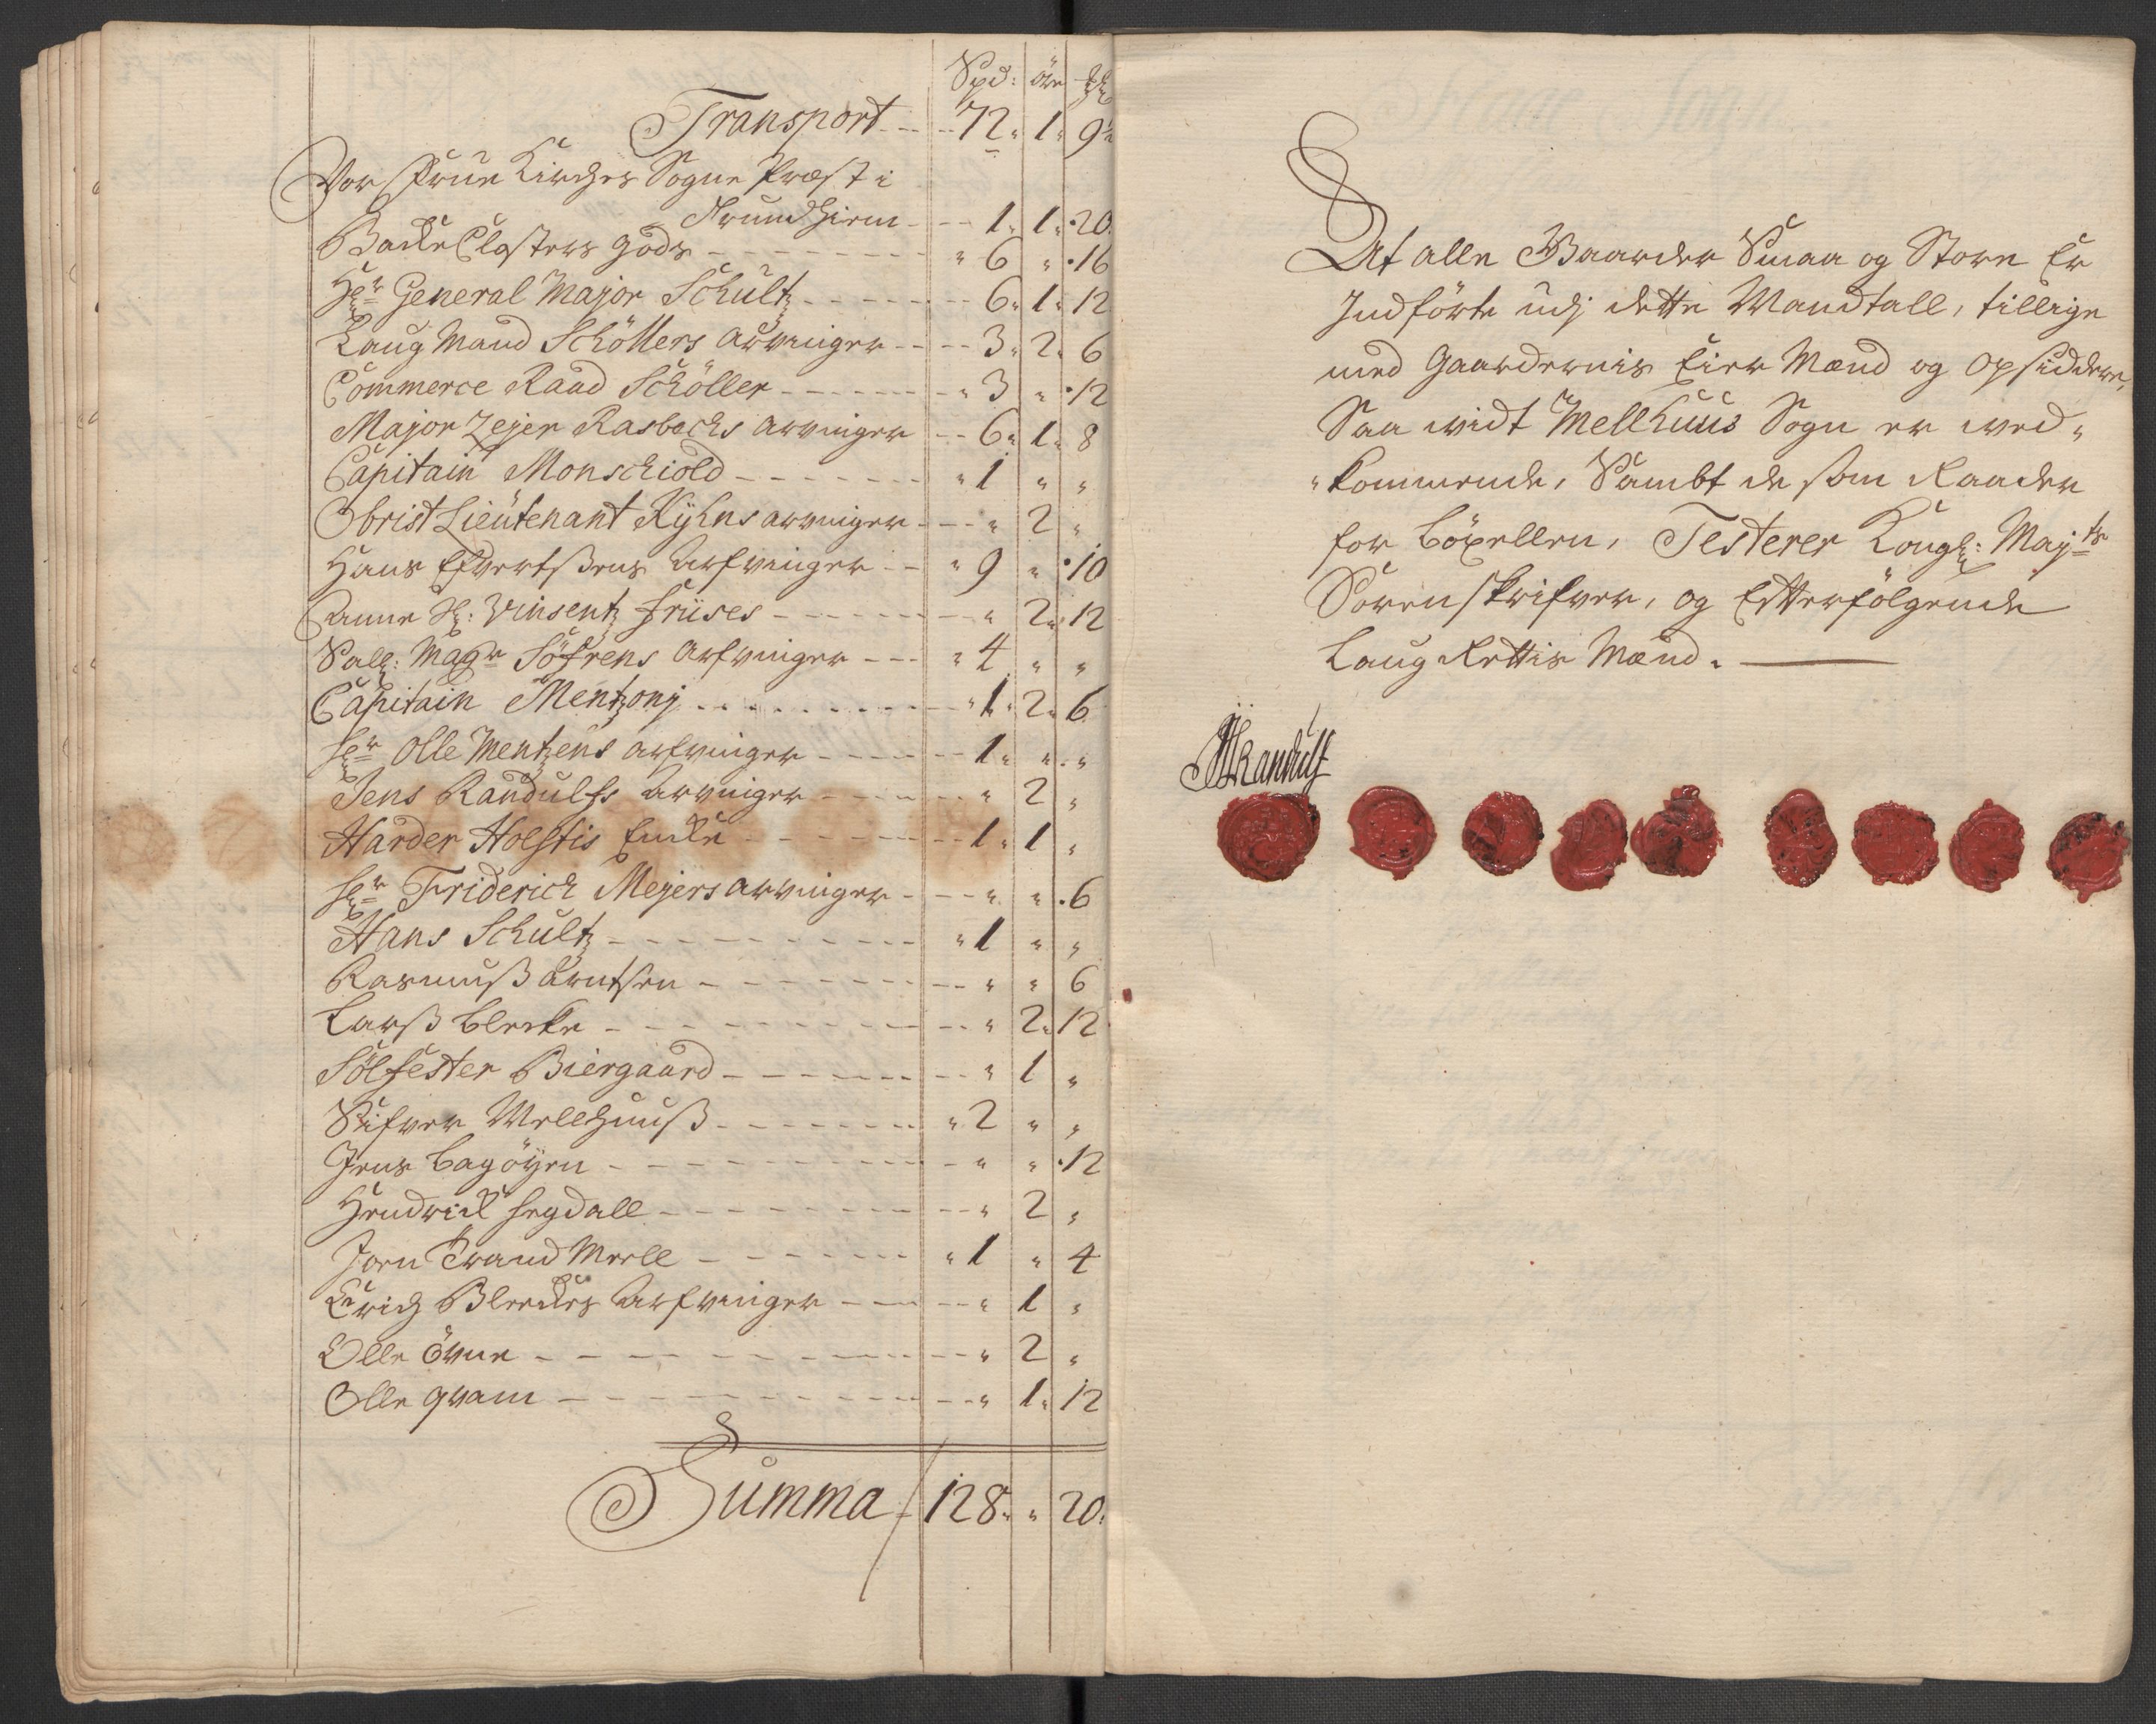 Spd: öre
Transport 72 1 9½
Vor Frue Kirches Sogne Præst i
Trundhiem 1 1 20
Backe Closters Gods 6 " 16
Hr General Major Schultz 6 1 12
Laug Mand Schöllers Arvinger 3 2 6
Commerce Raad Schöller 3 " 12
Major Zejer Rasbachs Arvinger 6 1 8
Capitain Monschiold 1 " "
Obrist Lieutenant Kyhns Arvinger " 2 "
Hans Efvertsens Arfvinger 9 " 10
Anne Sl: Vinsentz Friises " 2 12
Sall: Magr Söfrens Arfvinger 4 " "
Capitain Mentzonj 1 2 6
Hr Olle Mentzens Arfvinger 1 " "
Jens Randulfs Arvinger " 2 "
Harder Holstis Encke 1 1 "
Hr Friderich Mejers Arvinger " " 6
Hans Schultz 1 " "
Rasmuss Arntsen " " 6
Larss Blecke " 2 12
Sölfester Biergaard " 1 "
Sifver Mellhuuss 2 " "
Jens Bagöyen " " 12
Hendrick Hegdall " 2 "
Joen Trand Moell 1 " 4
Erich Bleckes Arfvinger " 1 "
Olle Övne " 2 "
Olle Qvam " 1 12
Summa 128 " 20
At alle Gaarder Smaa og Store Er
Indförte udj dette Mandtall, tillige
med Gaardernis Eier Mænd og Opsiddere,
Saa vidt Mellhuus Sogn er ved-
kommende, Sambt de som Raader
for böxellen, Testerer Kongl: Majts
Sorenskrifver, og Efterfölgende
Laug Rettis Mænd.
Randulf